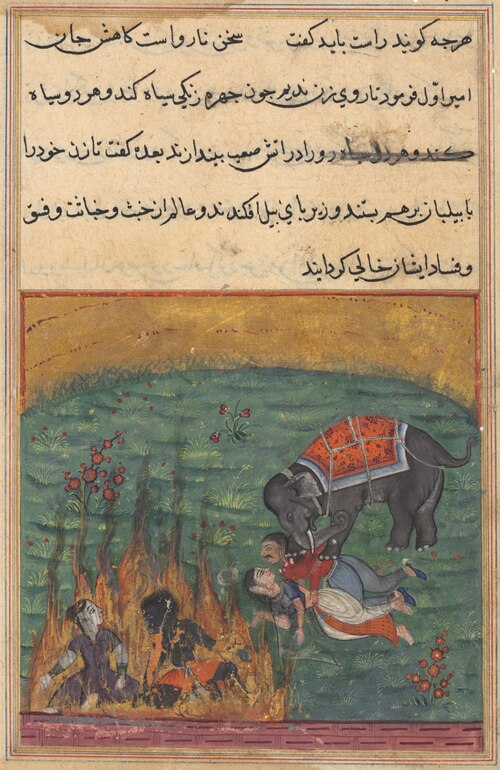 هرجه کویند راست باید کفت سخن ناراست کاهش جان
امیر اوّل فرمود تا روی زن ندیم جون جهره زنکی سیاه کند و هر دو سیاه
رو را در اتش صعب بیندازند بعده کفت تا زن خود را
با بیلبان برهم بستند و زیر بای بیل افکندند و عالم از خبث و خیانت و فسق
و فساد ایشان خالی کردانید